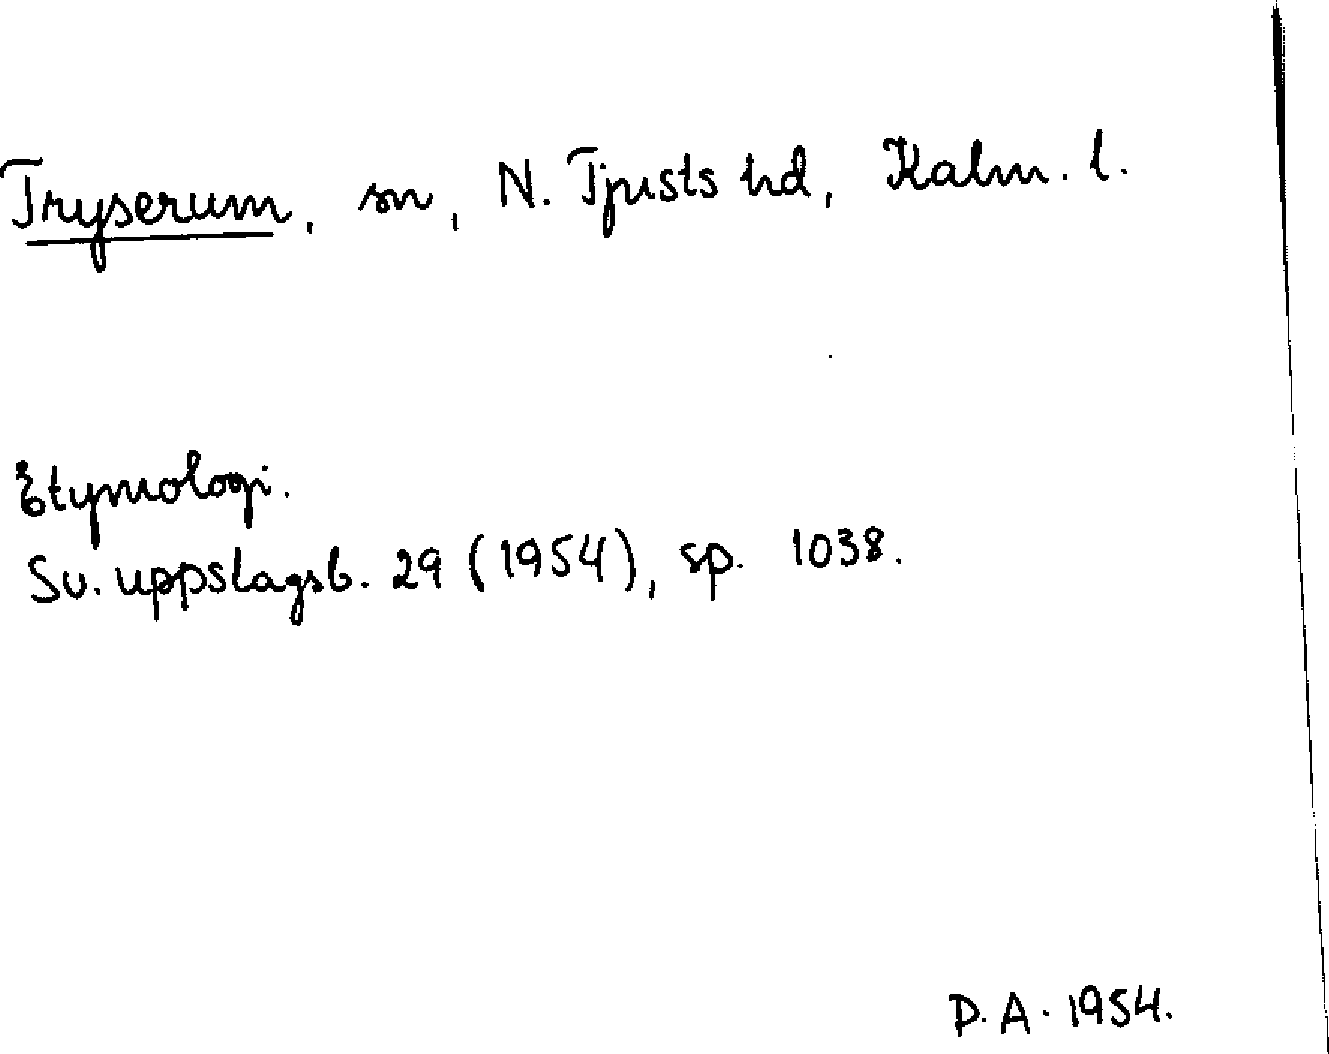 Tryserum, sn, N. Tjusts hd, Kalm. l.
Etymologi.
Sv. uppslagsb. 29 (1954), sp. 1038.
D. A. 1954.